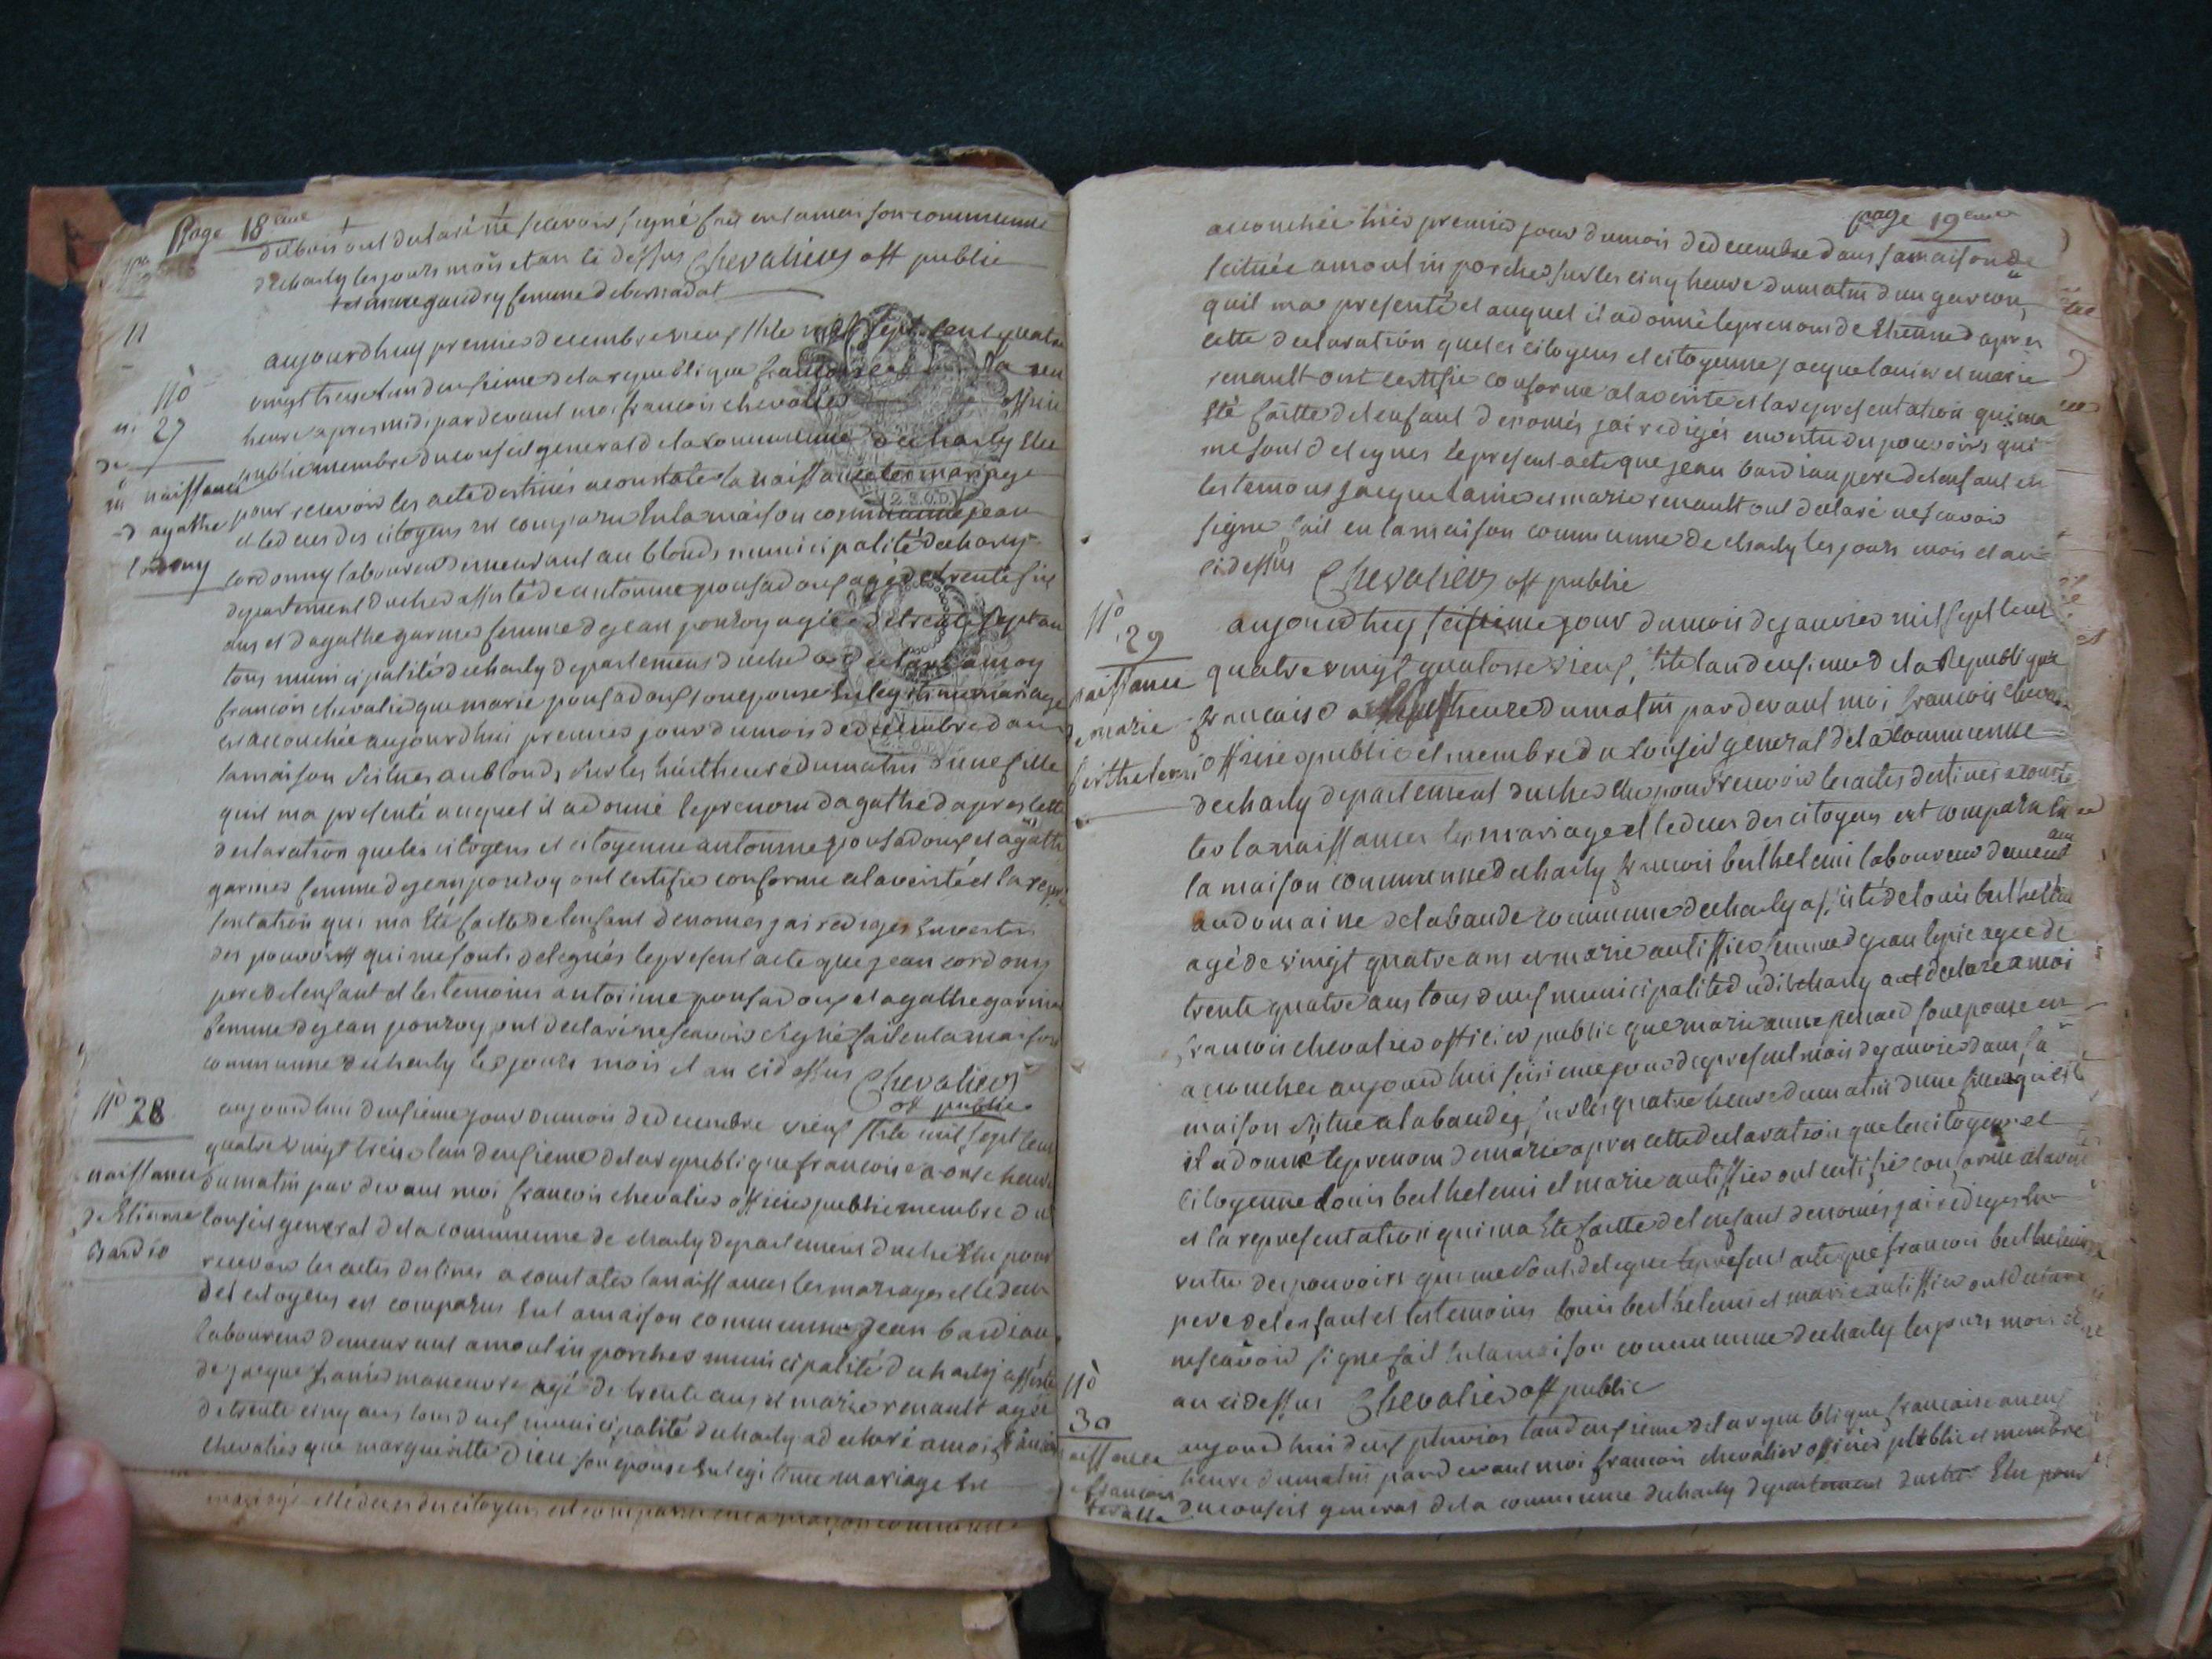 page 18eme
dubois ont declaré ne scavoir signé fait en la maison commune
decharly les jours mois et an ci dessus Chevaliers off public
et marie gaudry femme debernadat
11
aujourdhuy premier decembre vieux stile mil sept cent quatre
vingt treize lan deuxieme dela republique francoise
heure apres midi par devant moi francois chevalier officier
public membre du conseil general dela commune decharly Elu
pour recevoir les acte destinés a constater la naissance les mariage
et ledeces des citoyens est comparu En la maison commune jean
cordonny laboureur demeurant au blonds municipalité decharly
departement ducher assisté de antoinne pousadoux agé de trente six
ans et dagathe garmer femme dejean pouroy agée detrente sept an
tous municipalité decharly departement ducher a declaré a moy
francois chevalier que marie pousadoux son epouse En legitime mariage
est accouchée aujourdhui premier jour dumois dedecembre dans
samaison scitues au blonds sur les huit heure dumatin dune fille
quil ma presenté auquel il adonné leprenom dagathe dapres cette
declaration que les citoyens et citoyenne antoinne pousadoux et agathe
garmer femme dejean pouroy ont certifié conforme alaverité et la repré
sentation qui ma Eté faitte delenfant denomes jai rediges En vertu
des pouvoirs qui me sont delegués lepresent acte que jean cordony
pere delenfant et les temoins antoinne pousadoux et agathe garmer
femme dejean pouroy ont declaré ne scavoir signé fait en la maison
communne decharly les jours mois et an cidessus Chevaliers
off public
n° 27
naissance
agathe
cordony
n° 28
naissance
de Etienne
bardio
aujourdhui deuxieme jour dumois dedecembre vieux stile mil sept cent
quatre vingt treize lan deuxieme dela republique francoise a onze heure
dumatin par devant moi francois chevalier officier public membre du
conseil general dela communne de charly departement ducher Elu pour
recevoir les actes destines a constater la naissances les mariages et le deces
des citoyens est comparus En la maison communne jean bardiau
laboureur demeurant a moulin porcher municipalité decharly assisté
de jacque lanier maneuvre agé de trente ans et marie renault agée
detrente cinq ans tous deux municipalité decharly a declaré a moi francois
chevalier que margueritte dieu son epouse En legitime mariage Est
page 19eme
accouchée hier premier jour dumois dedecembre dans samaison de
scituée amoulin porcher sur les cinq heure dumatin dun garcon
quil ma presenté et auquel il adonné leprenom de Etienne dapres
cette declaration queles citoyens et citoyenne jacque lanier et marie
renault ont certifié conforme alaverité et la representation qui ma
Eté faitte delenfant denomés jai redigés en vertu des pouvoirs qui
me sont delegues lepresent acte que jean bardiau pere delenfant et
les temoins jacque lanier et marie renault ont declaré ne scavoir
signe fait en la maison communne decharly les jours mois et an
cidessus Chevaliers off public
n° 29
naissance
de marie
berthelemi
aujourdhuy seisieme jour dumois dejanvier mil sept cent
quatre vingt quatorze vieux stile lan deuxieme dela Republique
francaise a sept heure dumatin par devant moi francois cheval
officier public et membre du conseil general dela communne
decharly departement ducher Elu pour recevoir les actes destines aconsta
ter la naissances les mariage et le deces des citoyens est comparu En
la maison communne decharly francois berthelemi laboureur demeurant
audomaine delabande communne decharly assisté de louis berthelemi
agé de vingt quatre ans et marie autissier femme de jean lepie agee de
trente quatre ans tous deux municipalité dudit charly a declare a moi
francois chevalier officier public que marie anne renard son epouse est
acouchee aujourdhui seisieme jour du present mois dejanvier dans sa
maison situe a labandes sur les quatre heure dumatin dune fille a qui
il a donné leprenom de marie apres cette declaration que les citoyens et
citoyenne Louis berthelemi et marie autissier ont certifié conforme alaverité
et la representation qui ma Eté faitte delenfant denomés jai rediges En
vertu des pouvoirs qui me sont delegue lepresent acte que francois berthelemi
pere delenfant et les temoins louis berthelemi et marie autissier ont declare
ne scavoir signe fait En la maison communne decharly les jours mois et
an cidessus Chevalier off public
n° 30
naissance
francois
aujourdhui deux pluvios lan deuxieme dela republique francaise aneuf
heure dumatin par devant moi francois chevalier officier publie et membre
du conseil general dela communne decharly departement ducher Elu pour